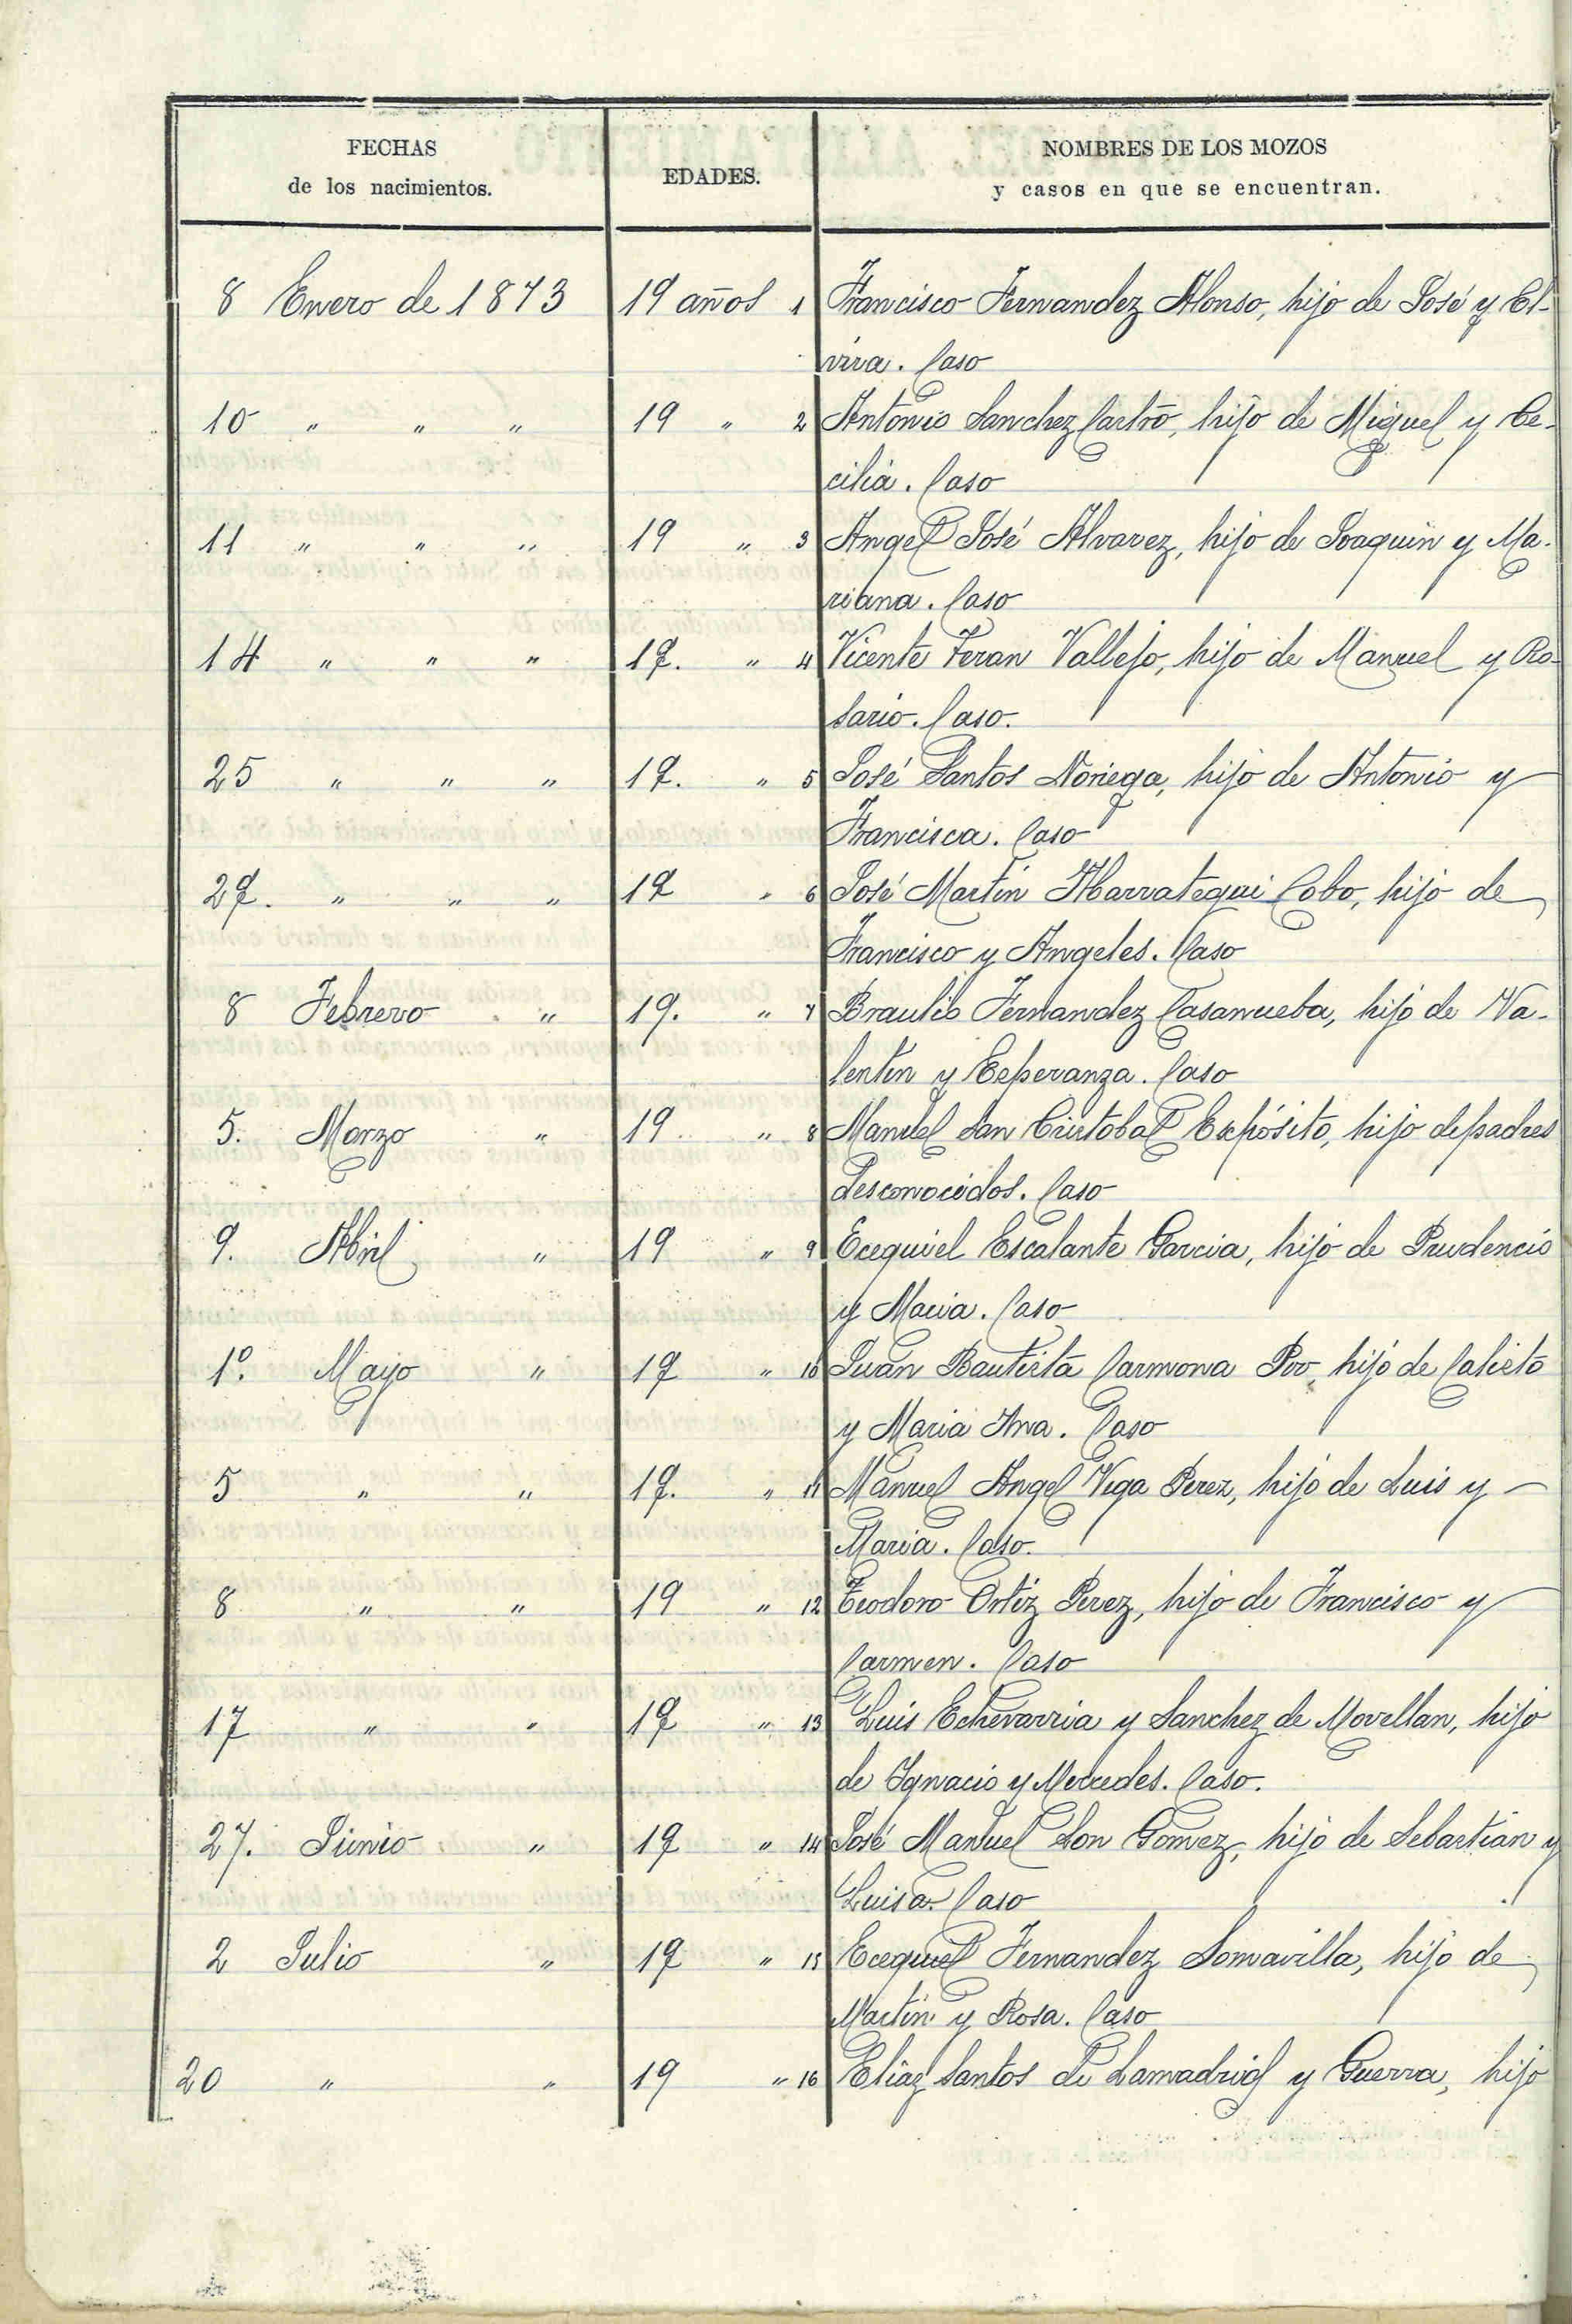 FECHAS
de los nacimientos.
EDADES.
NOMBRES DE LOS MOZOS
y casos en que se encuentran.
8 Enero de 1873 19 años 1 Francisco Fernandez Alonso, hijo de José y El-
vira. Caso
10 " " " 19 " 2 Antonio Sanchez Castro, hijo de Miguel y Ce-
cilia. Caso
11 " " " 19 " 3 Angel José Alvarez, hijo de Joaquin y Ma-
riana. Caso
14 " " " 19. " 4 Vicente Teran Vallejo, hijo de Manuel y Ro-
sario. Caso.
25 " " " 19. " 5 José Santos Noriega, hijo de Antonio y
Francisca. Caso
29. " " " 19 " 6 José Martin Abarrategui Cobo, hijo de
Francisco y Angeles. Caso
8 Febrero " 19. " 7 Braulio Fernandez Casanueba, hijo de Va-
lentin y Esperanza. Caso
5. Marzo " 19 " 8 Manuel San Cristobal Expósito, hijo de padres
desconocidos. Caso
9. Abril " 19 " 9 Ecequiel Escalante Garcia, hijo de Prudencio
y Maria. Caso
1º. Mayo " 19 " 10 Juan Bautista Carmona Poo, hijo de Calisto
y Maria Ana. Caso
5 " " 19. " 11 Manuel Angel Vega Perez, hijo de Luis y
Maria. Caso.
8 " " 19 " 12 Teodoro Ortiz Perez, hijo de Francisco y
Carmen. Caso
17 " " 19 " 13 Luis Echevarria y Sanchez de Movellan, hijo
de Ignacio y Mercedes. Caso.
27. Junio " 19 " 14 José Manuel Lon Gomez, hijo de Sebastian y
Luisa. Caso
2 Julio " 19 " 15 Ecequiel Fernandez Somavilla, hijo de
Martin y Rosa. Caso
20 " " 19 " 16 Elias Santos de Lamadrid y Guerra, hijo